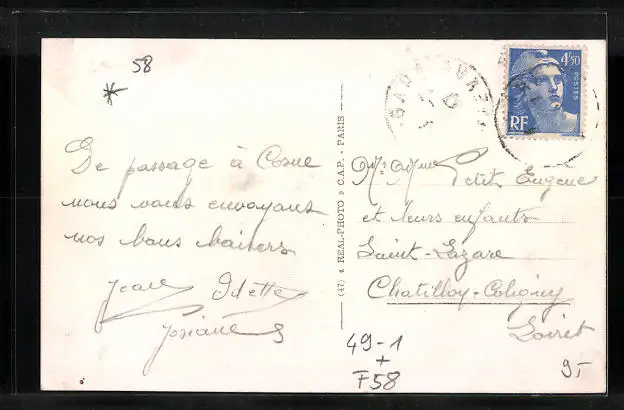 58
*
De passage à Cosne
nous vous envoyons
nos bons baisers
Jean Odette
Josiane
(47) 4 REAL-PHOTO » C.A.P. - PARIS
4f50
POSTES
RF
Mr Mme Petit Eugene
et leurs enfants
Saint-Lazare
Chatillon-Coligny
Loiret
49-1
+
F58
9,-